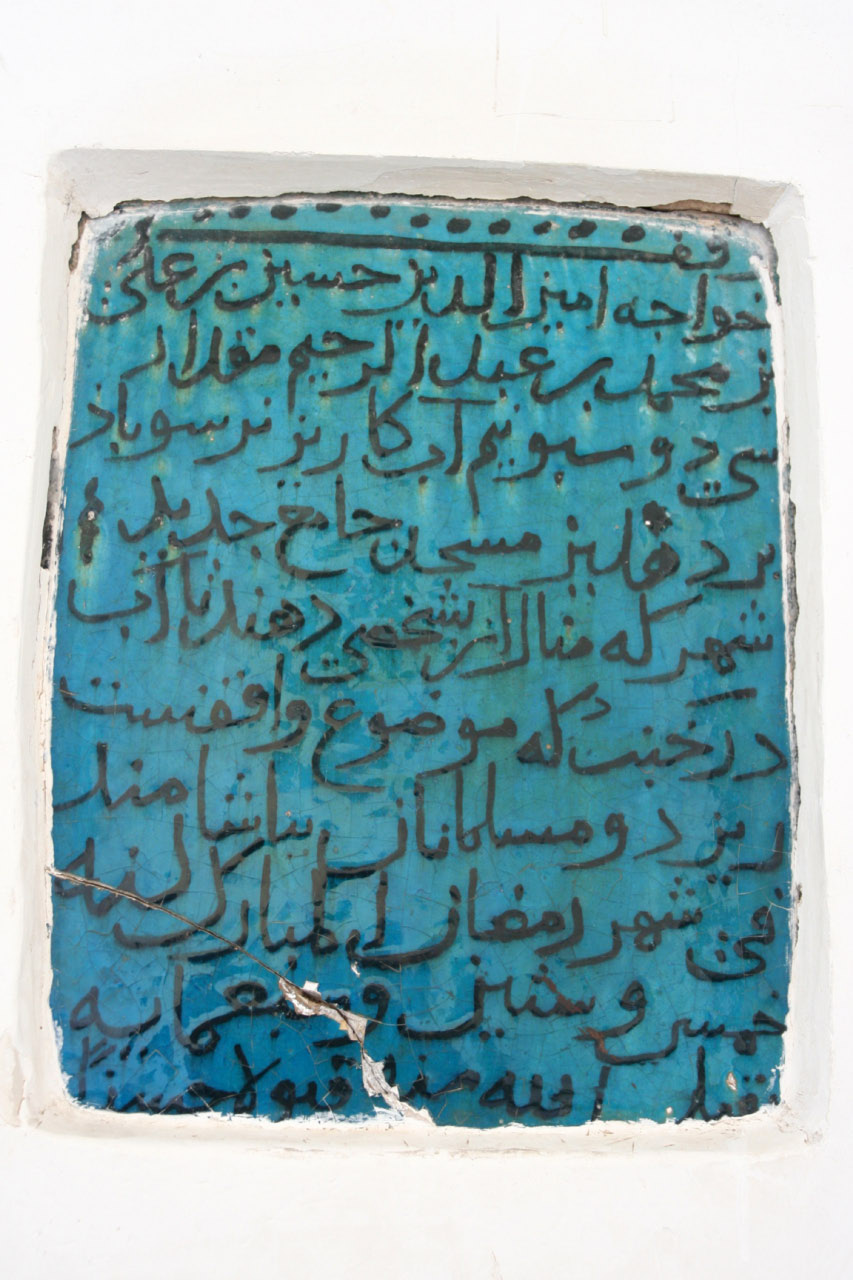 وقف
خواجه امیر الدین حسین بن علی
بن محمد بن عبد الرحیم مقدار
سی و دو سبو نیم آب کاریز نرسوباد
بر دهلیز مسجد جامع جدید
شهر که منال آن شخصی دهند تا آب
در خنب که موضوع واقفست
ریزد و مسلمانان بیاشامند
فی شهر رمضان المبارک لسنه
خمس و ستین و سبعمایه
تقبل الله منه قبولا حسنا